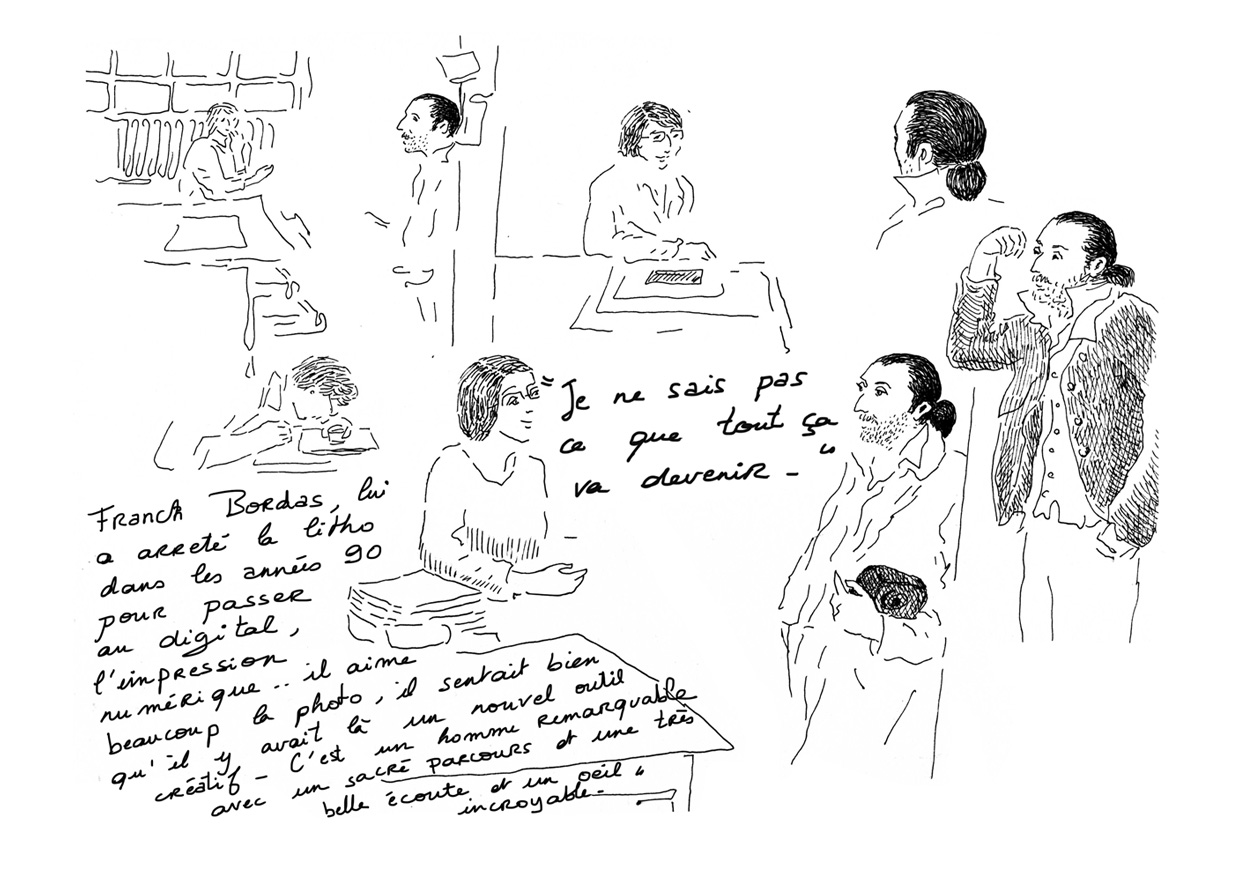 "Je ne sais pas
ce que tout ça
va devenir - "
Franck Bordas, lui
a arreté la litho
dans les années 90
pour passer
au digital,
l'impression
numérique .. il aime
beaucoup la photo, il sentait bien
qu'il y avait là un nouvel outil
créatif - C'est un homme remarquable
avec un sacré parcours et une très
belle écoute et un oeil "
incroyable -